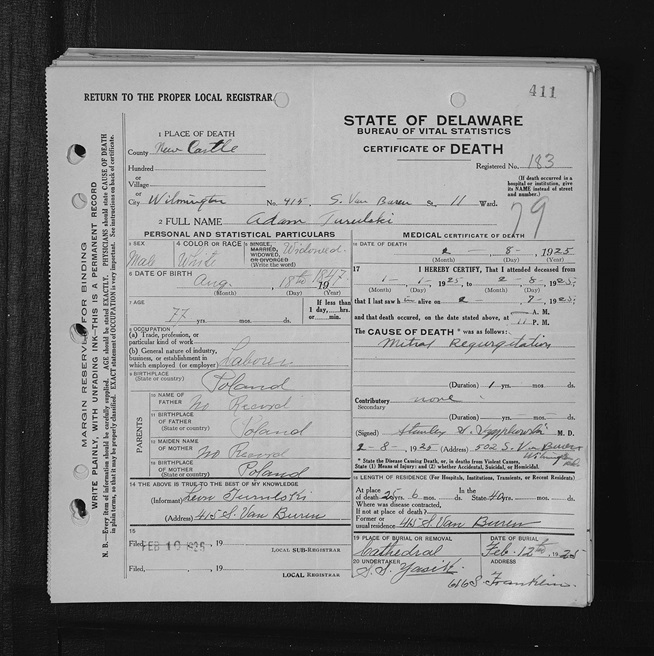 411
RETURN TO THE PROPER LOCAL REGISTRAR
STATE OF DELAWARE
BUREAU OF VITAL STATISTICS
CERTIFICATE OF DEATH
Registered No. 183
(If death occurred in a hospital or institution, give its NAME instead of street and number.)
79
MARGIN RESERVED FOR BINDING
WRITE PLAINLY, WITH UNFADING INK—THIS IS A PERMANENT RECORD
N. B.—Every item of information should be carefully supplied. AGE should be stated EXACTLY. PHYSICIANS should state CAUSE OF DEATH in plain terms, so that it may be properly classified. EXACT statement of OCCUPATION is very important. See instructions on back of certificate.
1 PLACE OF DEATH
County New Castle
Hundred
or
Village
or
City Wilmington No. 415 S. Van Buren St. 11 Ward.
2 FULL NAME Adam
PERSONAL AND STATISTICAL PARTICULARS
3 SEX
Male
4 COLOR OR RACE
White
5 SINGLE, MARRIED, WIDOWED, OR DIVORCED (Write the word)
Widowed
6 DATE OF BIRTH
Aug. 18th 1847
(Month) (Day) (Year)
7 AGE
77 yrs. mos. ds.
If less than 1 day,....hrs. or....min.
8 OCCUPATION
(a) Trade, profession, or particular kind of work
(b) General nature of industry, business, or establishment in which employed (or employer)
Laborer
9 BIRTHPLACE
(State or country)
Poland
PARENTS
10 NAME OF FATHER
No Record
11 BIRTHPLACE OF FATHER
(State or country)
Poland
12 MAIDEN NAME OF MOTHER
No Record
13 BIRTHPLACE OF MOTHER
(State or country)
Poland
14 THE ABOVE IS TRUE TO THE BEST OF MY KNOWLEDGE
(Informant) Leon
(Address) 415 S. Van Buren
15
Filed FEB 10 , 19
LOCAL SUB-REGISTRAR
Filed , 19
LOCAL REGISTRAR
MEDICAL CERTIFICATE OF DEATH
16 DATE OF DEATH
2 - 8 - 1925
(Month) (Day) (Year)
17 I HEREBY CERTIFY, That I attended deceased from
1 - 1 - 1925, to 2 - 8 - 1925;
that I last saw h alive on 2 - 7 - 1925;
and that death occurred, on the date stated above, at A. M.
11 P. M.
The CAUSE OF DEATH * was as follows:
Mitral Regurgitation
(Duration) 1 yrs. mos. ds.
Contributory none
Secondary
(Duration) yrs. mos. ds.
(Signed) Stanley M. D.
2-8- 1925 (Address) 502 S. Van Buren
Wilmington Del.
* State the Disease Causing Death, or, in deaths from Violent Causes, State (1) Means of Injury: and (2) whether Accidental, Suicidal, or Homicidal.
18 LENGTH OF RESIDENCE (For Hospitals, Institutions, Transients, or Recent Residents)
At place of death 25 yrs. 6 mos. ds. In the State 40 yrs. mos. ds.
Where was disease contracted,
If not at place of death?
Former or usual residence 415 S. Van Buren
19 PLACE OF BURIAL OR REMOVAL
Cathedral
DATE OF BURIAL
Feb. 12th, 1925
20 UNDERTAKER
ADDRESS
616 S. Franklin